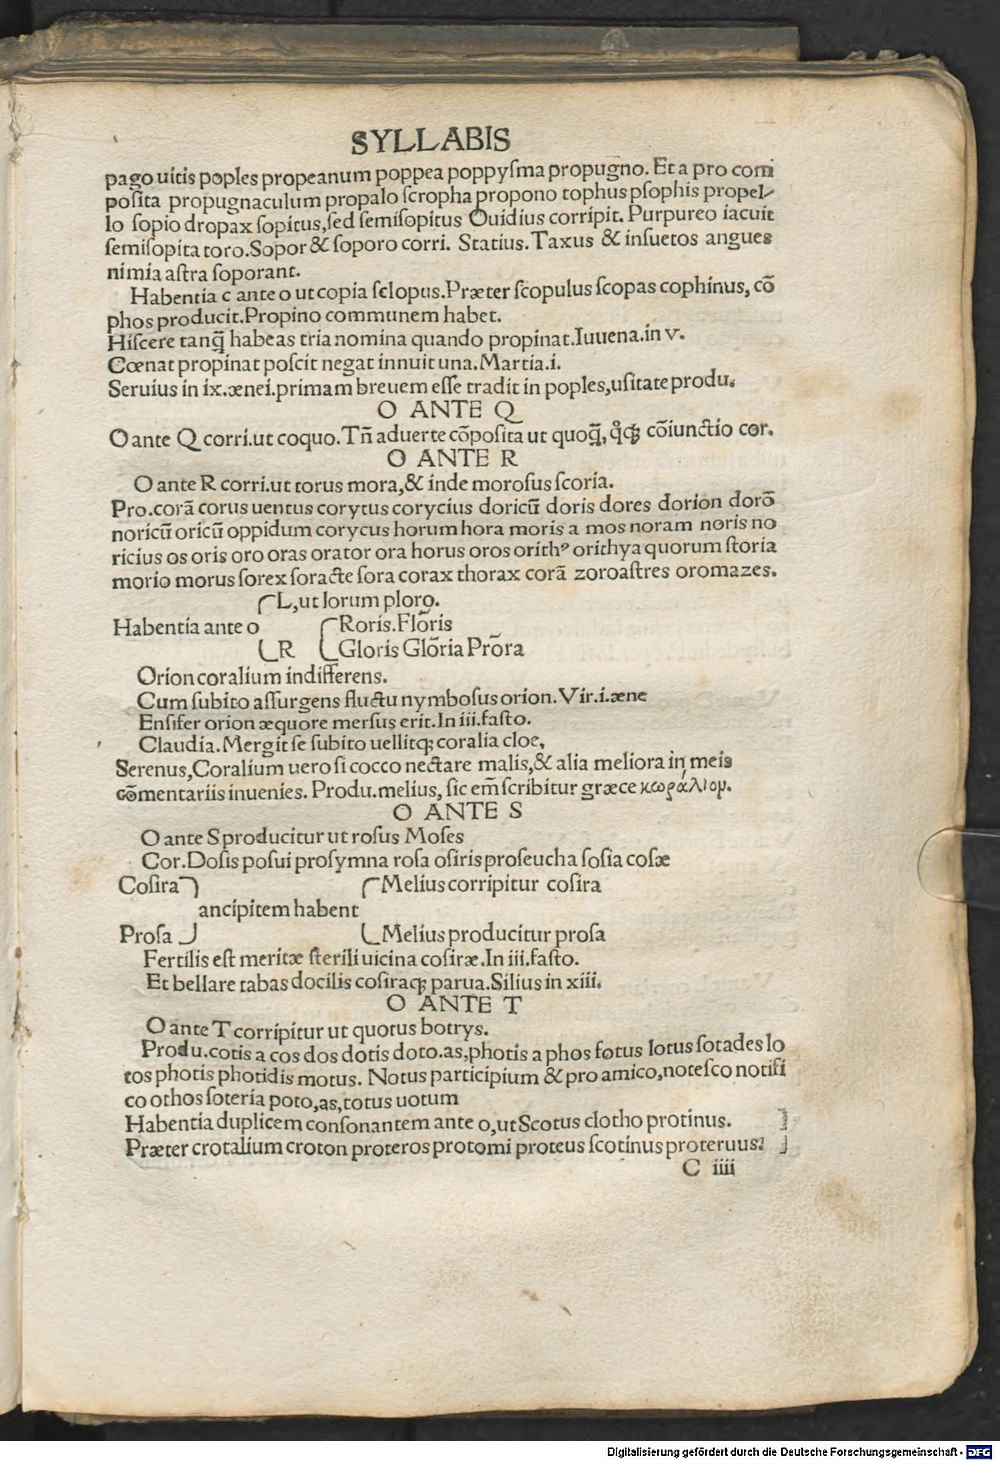 SYLLABIS
pago uitis poples propeanum poppea poppysma propugno. Et a pro com
posita propugnaculum propalo scropha propono tophus psophis propel-
lo sopio dropax sopitus, sed semisopitus Ouidius corripit. Purpureo iacuit
semisopita toro. Sopor & soporo corri. Statius. Taxus & insuetos angues
nimia astra soporant.
Habentia c ante o ut copia sclopus. Præter scopulus scopas cophinus, cō
phos producit. Propino communem habet.
Hiscere tanq̄ habeas tria nomina quando propinat. Iuuena. in v.
Cœnat propinat poscit negat innuit una. Martia. i.
Seruius in ix. ænei. primam breuem esse tradit in poples, usitate produ.
O ANTE Q
O ante Q corri. ut coquo. Tn̄ aduerte cōposita ut quoq̄, q̊ꝗ cōiunctio cor.
O ANTE R
O ante R corri. ut torus mora, & inde morosus scoria.
Pro. corā corus uentus corytus corycius doricū doris dores dorion dorō
noricū oricū oppidum corycus horum hora moris a mos noram noris no
ricius os oris oro oras orator ora horus oros orithꝰ orithya quorum storia
morio morus sorex soracte sora corax thorax corā zoroastres oromazes.
L, ut lorum ploro.
Habentia ante o Roris. Flōris
R Gloris Glōria Prōra
Orion coralium indifferens.
Cum subito assurgens fluctu nymbosus orion. Vir. i. æne
Ensifer orion æquore mersus erit. In iii. fasto.
Claudia. Mergit se subito uellitq; coralia cloe,
Serenus, Coralium uero si cocco nectare malis, & alia meliora in meis
cōmentariis inuenies. Produ. melius, sic em̄ scribitur græce κωράλιομ.
O ANTE S
O ante S producitur ut rosus Moses
Cor. Dosis posui prosymna rosa osiris proseucha sosia cosæ
Cosira Melius corripitur cosira
ancipitem habent
Prosa Melius producitur prosa
Fertilis est meritæ sterili uicina cosiræ. In iii. fasto.
Et bellare tabas docilis cosiraq; parua. Silius in xiii.
O ANTE T
O ante T corripitur ut quotus botrys.
Produ. cotis a cos dos dotis doto. as, photis a phos fotus lotus sotades lo
tos photis photidis motus. Notus participium & pro amico, notesco notifi
co othos soteria poto, as, totus uotum
Habentia duplicem consonantem ante o, ut Scotus clotho protinus.
Præter crotalium croton proteros protomi proteus scotinus proteruus.
C iiii
Digitalisierung gefördert durch die Deutsche Forschungsgemeinschaft - DFG